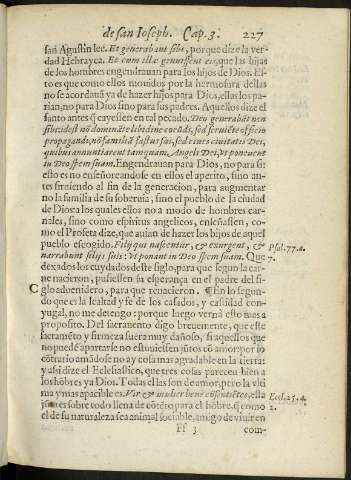 de san Ioseph. Cap. 3. 227
san Agustin lee. Et generabant sibi, porque dize la ver-
dad Hebrayca. Et cum illæ genuissent eis, que las hijas
de los hombres engendrauan para los hijos de Dios. Es-
to es que como ellos mouidos por la hermosura dellas
no se acordassē ya de hazer hijos para Dios, ellas los pa-
rian, no para Dios sino para sus padres. Aquellos dize el
santo antes q̄ cayessen en tal pecado. Deo generabāt non
sibi: id est nō dominā te libidine coeūdi, sed seruiēte officio
propagandi: nō familiæ fastus sui, sed ciues ciuitatis Dei,
quibus annuntiarent tamquam, Angeli Dei, vt ponerent
in Deo spem suam. Engendrauan para Dios, no para si:
esto es no enseñoreandose en ellos el aperito, sino an-
tes siruiendo al fin de la generacion, para augmentar
no la familia de su soberuia, sino el pueblo de la ciudad
de Dios a los quales ellos no a modo de hombres car-
nales, sino como espiritus angelicos, enseñassen, co-
mo el Profeta dize, que auian de hazer los hijos de aquel
pueblo escogido. Filij qui nascentur, & exurgent, & Psal. 77. a.
narrabunt filijs suis: vt ponant in Deo spem suam. Que 7.
dexados los cuydados deste siglo, para que segun la car-
ne nacieron, pusiessen su esperança en el padre del si-
C glo aduenidero, para que renacieron. ¶ En lo segun-
do que es la lealtad y fe de los casados, y castidad con-
yugal, no me detengo: porque luego verna esto mas a
proposito. Del sacramento digo breuemente, que este
sacramēto y firmeza fuera muy dañoso, si aquellos que
no puedē apartarse no estuuiessen jūtos cō amor: por lo
cōtrario amādose no ay cosa mas agradable en la tierra:
y assi dize el Eclesiastico, que tres cosas parecen bien a
los hōbres ya Dios. Todas ellas son de amor, pero la vlti
ma y mas apacible es. Vir & mulier bene cōsentiētes, esta Eccl. 25. a.
es sobre todo llena de cōtēto para el hōbre. q̄ como 2.
el de su naturaleza sea animal sociable, amigo de viuir en
Ff 3 com-